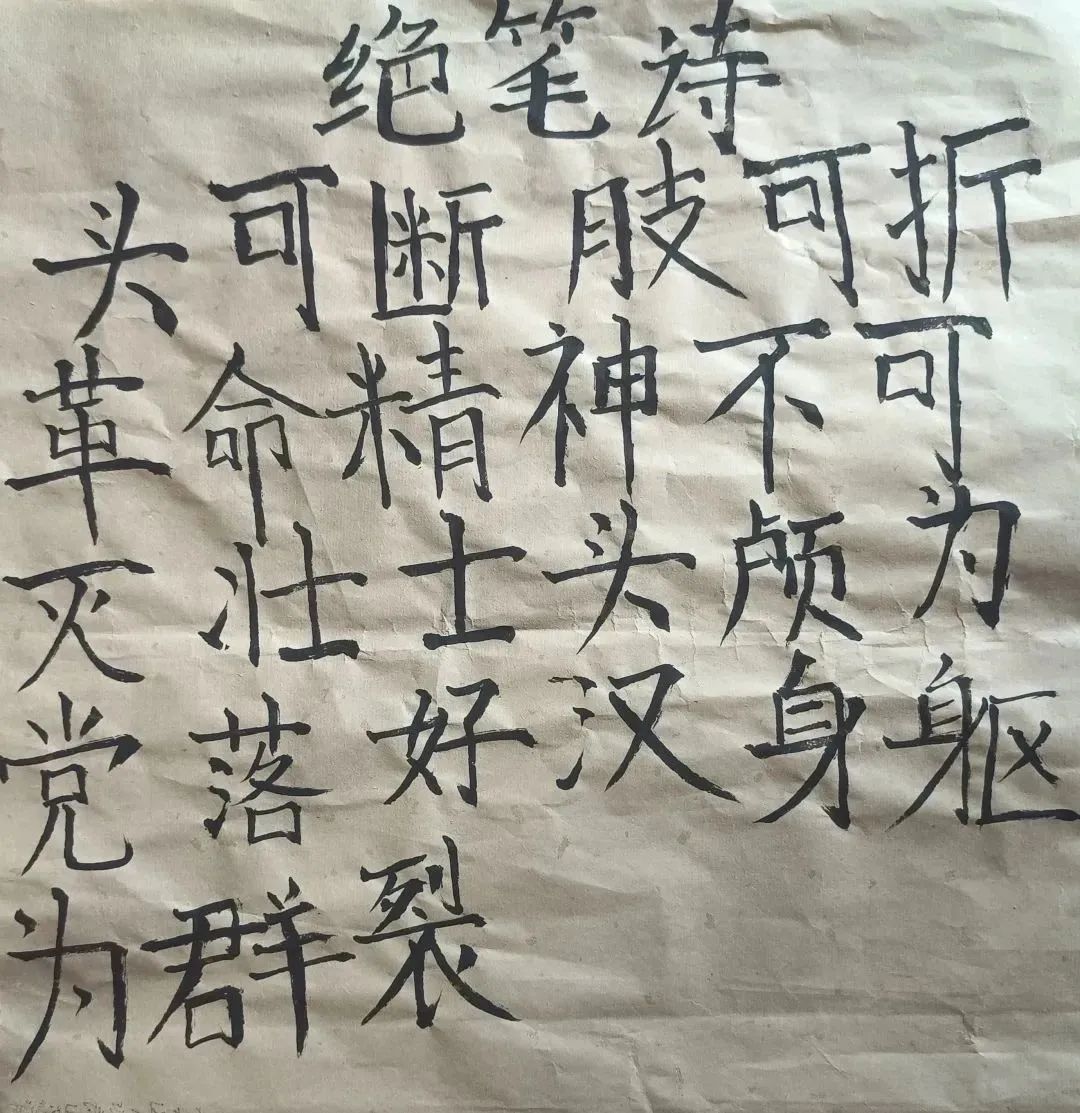 绝笔诗
头可断肢可折
革命精神不可
灭壮士头颅为
党落好汉身躯
为群裂